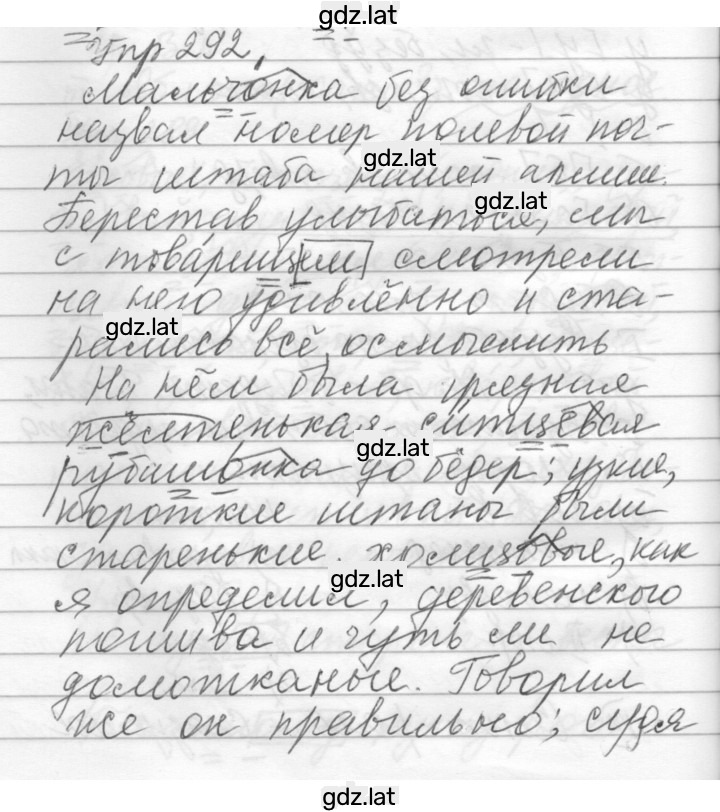 gdz.lat
Упр 292.
Мальчонка без ошибки
назвал номер полевой поч-
gdz.lat
ты штаба нашей армии.
gdz.lat
Перестав улыбаться, мы
с товарищем смотрели
на него удивлённо и ста-
gdz.lat
рались всё осмыслить
На нём была грязная
жёлтенькая ситцевая
gdz.lat
рубашонка до бёдер; узкие,
короткие штаны были
старенькие, холщовые, как
gdz.lat
я определил, деревенского
пошива и чуть ли не
домотканые. Говорил
же он правильно; судя
gdz.lat